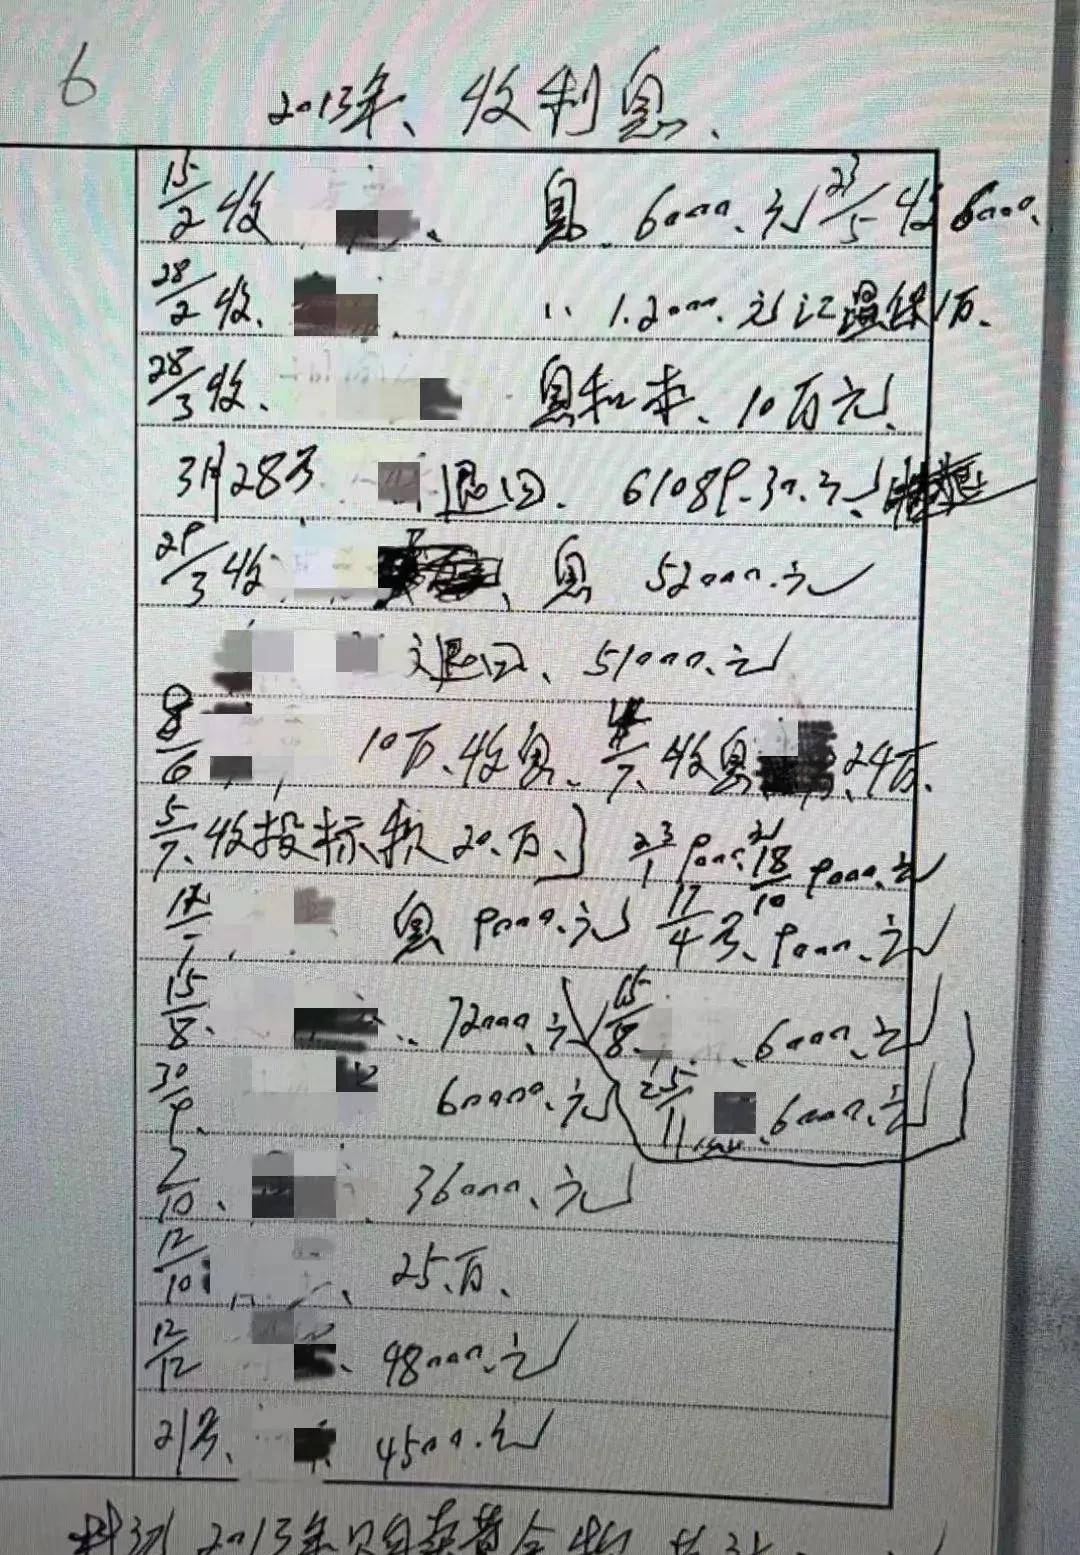 6
2013年、收利息、
15/2 收 、 息 6000、元 23/5 收 6000、
28/2 收、 、、 1.2000、元 汇温保1万、
28/3 收、 息和本、10万元、
3月28号 退回、61089.30、元、
29/3 收 、息 52000、元
退回、51000、元
8/6 10万、收息、 /7、收息 、24万、
5/7、收投标款20、万、 23/1 9000、元 18/10 9000、元
息 9000、元 17/4号、9000、元
15/8、 、72000、元 15/8、 、6000、元
30/9、 60000、元 25/11 、6000、元
2/10、 36000、元
12/10 、25、万、
12/12 、48000、元
21号、 4500、元
2013年